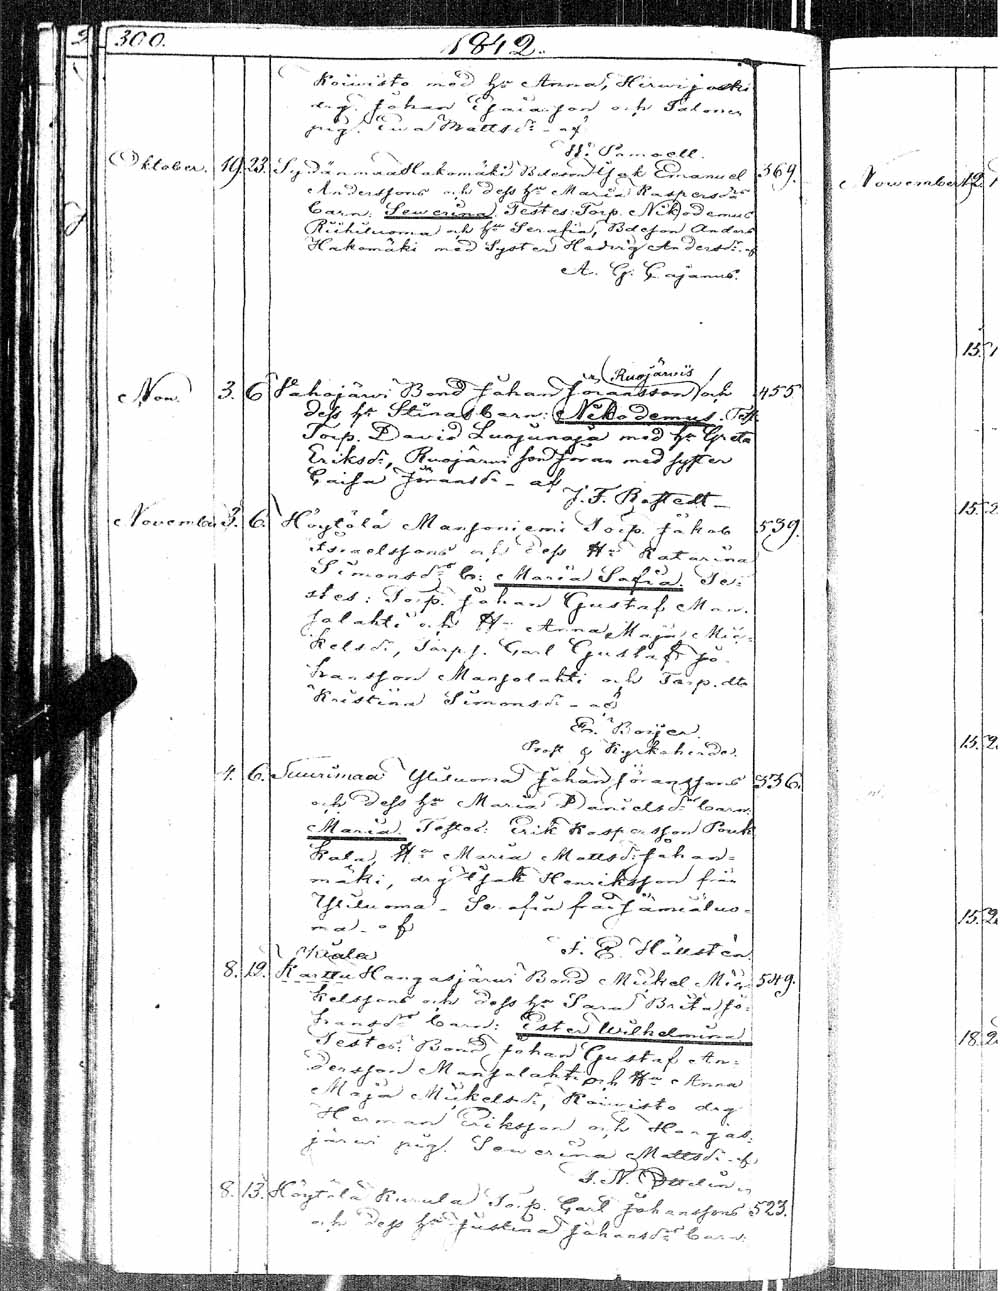 300.
1842.
Koivisto med hu Anna, Hirwijoki
drg. Johan Esaiasson och Salonen
pig. Ewa Mattsdr - af
Oktober. 19. 23. Sydänmaa Hakomäki Bdeson Isak Emanuel 369.
Anderssons och dess hu Maria Kaspersdrs
barn: Sewerina. Testes: Torp. Nikodemus
Riihiluoma och hu Serafia, Bdeson Anders
Hakomäki med Syster Hedvig Andersdr. af
A. G. Cajanus.
Ruojärvis
Nov. 3. 6 Vahojärvi Bond Johan Göransson och 455
dess hu Stinas barn: Nikodemus. Test.
Torp. David Luojunoja med hu Greta
Eriksdr, Ruojärvi son Göran med syster
Caisa Göransdr - af
J. F. Rostedt
November 3. 6. Höytölä Mansoniemi Torp. Jakob 539.
Israelssons och dess Hu Katarina
Simonsdrs b: Maria Safia Te-
stes: Torp. Johan Gustaf Man-
solahti och Hu Anna Maja Mic-
kelsdr, Torp. Carl Gustaf Jo-
hansson Mansolahti och Torp. dtr
Kristina Simonsdr - af
Fr. Borjer
Prost & Kyrkoherde.
4. 6. Suurimaa Yliluoma Johan Göranssons 336.
och dess hu Maria Danielsdrs barn
Maria. Testes: Erik Kaspersson Pouk
kala, Hu Maria Mattsdr Johan-
mäki, drg Isak Henriksson från
Yliluoma - Serafia från Jämiäluo-
ma - af
J. E. Hällstén
Kiala
8. 19. Karttu Hangasjärwi Bond Mickel Mic- 549.
kelssons och dess hu Sara Brita Jo-
hansdrs barn: Ester Wilhelmina
Testes: Bond Johan Gustaf An-
dersson Mansolahti och Hu Anna
Maja Mickelsdr, Koiwisto drg
Herman Eriksson och Hangas-
järwi pig. Sewerina Mattsdr. af
J. N. Ottelin
8. 13. Höytölä Kurula Torp. Carl Johanssons 523.
och dess hu Justina Johansdrs barn:
November 12.
15.
15. 2
15. 2
15. 2
18. 2